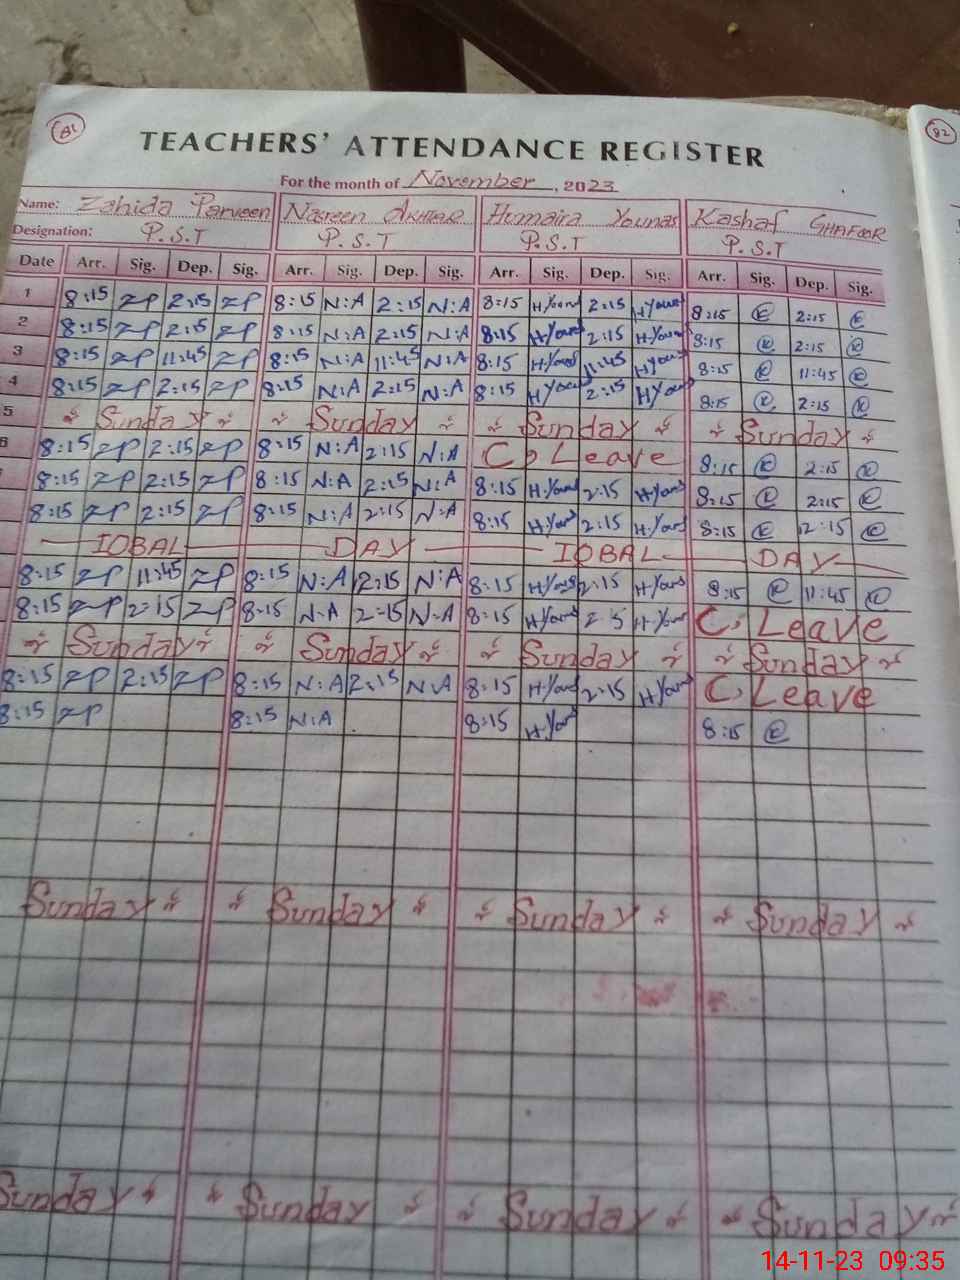 81
82
TEACHERS' ATTENDANCE REGISTER
For the month of November, 2023
Name: Zahida Parveen Nasreen AKHTAR Humaira Younas Kashaf GHAFOOR
Designation: P.S.T P.S.T P.S.T P.S.T
Date Arr. Sig. Dep. Sig. Arr. Sig. Dep. Sig. Arr. Sig. Dep. Sig. Arr. Sig. Dep. Sig.
1 8:15 ZP 2:15 ZP 8:15 N:A 2:15 N:A 8:15 H.Youns 2:15 H.Youns 8:15 K 2:15 K
2 8:15 ZP 2:15 ZP 8:15 N:A 2:15 N:A 8:15 H.Youns 2:15 H.Youns 8:15 K 2:15 K
3 8:15 ZP 11:45 ZP 8:15 N:A 11:45 N:A 8:15 H.Youns 11:45 H.Youns 8:15 K 11:45 K
4 8:15 ZP 2:15 ZP 8:15 N:A 2:15 N:A 8:15 H.Youns 2:15 H.Youns 8:15 K 2:15 K
5 Sunday Sunday Sunday Sunday
6 8:15 ZP 2:15 ZP 8:15 N:A 2:15 N:A C, Leave 8:15 K 2:15 K
8:15 ZP 2:15 ZP 8:15 N:A 2:15 N:A 8:15 H.Youns 2:15 H.Youns 8:15 K 2:15 K
8:15 ZP 2:15 ZP 8:15 N:A 2:15 N:A 8:15 H.Youns 2:15 H.Youns 8:15 K 2:15 K
IQBAL DAY IQBAL DAY
8:15 ZP 11:45 ZP 8:15 N:A 12:15 N:A 8:15 H.Youns 2:15 H.Youns 8:15 K 11:45 K
8:15 ZP 2:15 ZP 8:15 N:A 2:15 N:A 8:15 H.Youns H.Youns C, Leave
Sunday Sunday Sunday Sunday
8:15 ZP 2:15 ZP 8:15 N:A 2:15 N:A 8:15 H.Youns 2:15 H.Youns C, Leave
8:15 ZP 8:15 N:A 8:15 H.Youns 8:15 K
Sunday Sunday Sunday Sunday
Sunday Sunday Sunday Sunday
14-11-23 09:35